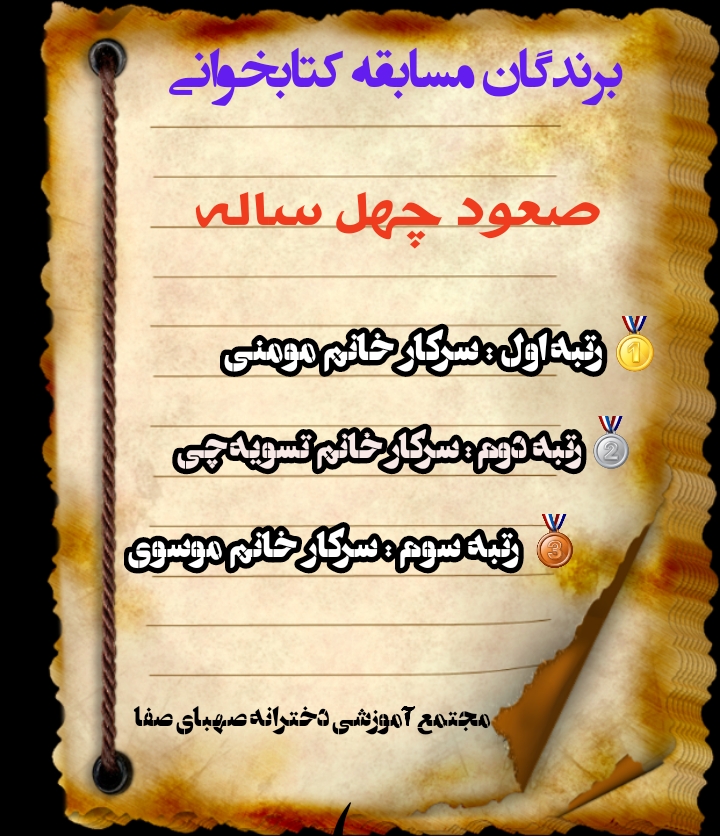 برندگان مسابقه کتابخوانی
صعود چهل ساله
رتبه اول : سرکار خانم مومنی
رتبه دوم : سرکار خانم تسویه‌چی
رتبه سوم : سرکار خانم موسوی
مجتمع آموزشی دخترانه صهبای صفا